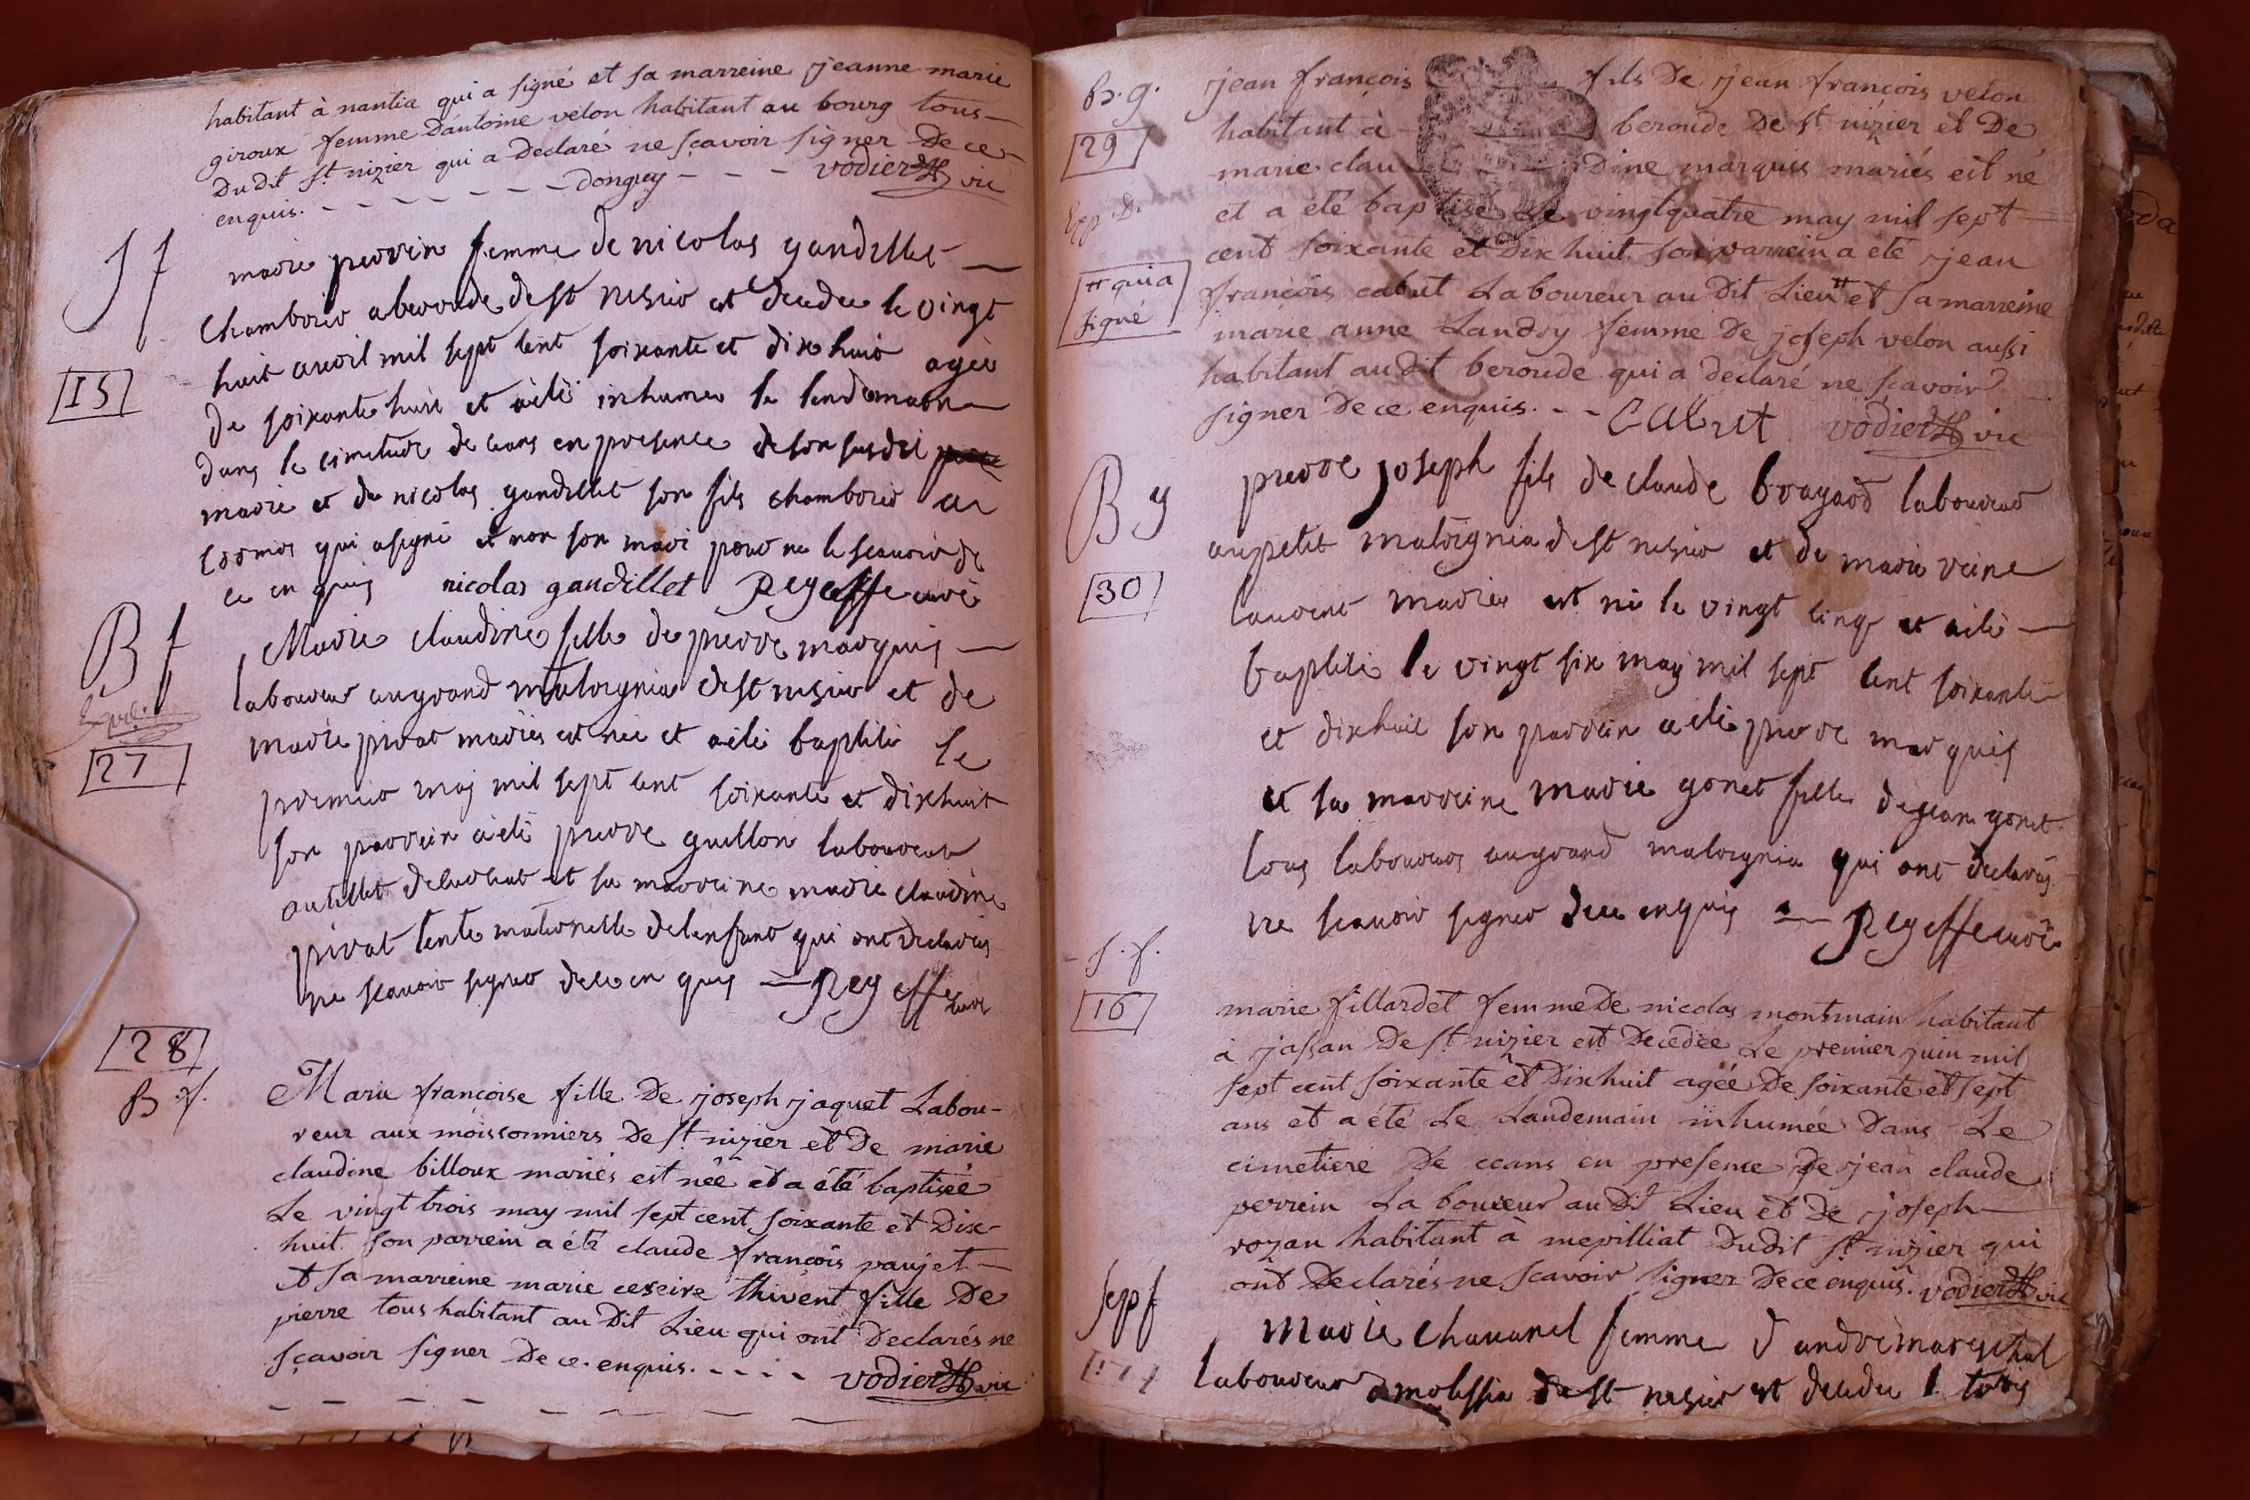 habitant à nantia qui a signé et sa marreine jeanne marie
giroux femme D'antoine velon habitant au bourg tous
Dudit St nizier qui a Declaré ne sçavoir signer De ce
enquis. donguy vodier vic
S f
marie perrin femme de nicolas gandillet
Chamborir a beroude de st nisier et decedee le vingt
huit avril mil sept cent soixante et dix huit agée
15
de soixante huit et a été inhumee le lendemain
dans le cimetiere de ceans en presence de son susdit
marie et de nicolas gandillet son fils
cosmos qui a signé et non son mari pour ne le scavoir de
ce en quis nicolas gandillet Reyeffe curé
B f
Marie claudine fille de pierre marquis
laboureur au grand malorgnia de st nisier et de
27
marie pivat mariés est née et a été baptisée le
premier may mil sept cent soixante et dixhuit
son parrein a été pierre guillon laboureur
et sa marreine marie claudine
pivat tente maternelle de lenfant qui ont declarés
ne scavoir signer de ce en quis Reyeffe curé
28
B. f.
Marie françoise fille De joseph jaquet Labou-
reur aux moissonniers De St nizier et De marie
claudine billoux mariés est née et a été baptisée
Le vingt trois may mil sept cent soixante et Dix
huit. son parrein a été claude françois paujet
et sa marreine marie thivent fille De
pierre tous habitant au Dit Lieu qui ont Declarés ne
sçavoir signer De ce enquis. vodier vic
B. g.
jean françois fils De jean françois velon
29
habitant à beroude De st nizier et De
marie clau Dine marquis mariés est né
Exp. D.
et a été baptisé le vingtquatre may mil sept
cent soixante et Dixhuit son parrein a été jean
# qui a
signé
françois cabut Laboureur au Dit Lieu # et sa marreine
marie anne Landry femme De joseph velon aussi
habitant au dit beroude qui a declaré ne scavoir
signer De ce enquis. vodier vic
B g
pierre joseph fils de claude brayard laboureur
au petit malorgnia de st nisier et de marie reine
30
laurent mariés est né le vingt cinq et a été
baptisé le vingt six may mil sept cent soixante
et dixhuit son parrein a été pierre marquis
et sa marreine marie gonet fille de jean gonet
tous laboureurs au grand malorgnia qui ont declarés
ne scavoir signer de ce enquis Reyeffe curé
S. f.
16
marie fillardet femme De nicolas montmain habitant
à jassan De St nizier est Decedée Le premier juin mil
sept cent soixante et Dixhuit agée De soixante et sept
ans et a été Le Landemain inhumée Dans Le
cimetiere De ceans en presence De jean claude
perrin Laboureur au Dit Lieu et De joseph
rozan habitant à mepilliat Dudit St nizier qui
ont Declarés ne scavoir signer De ce enquis. vodier vic
Sep f
Marie chavanel femme d'andré marechal
laboureur a molissia de st nisier est decedee l trois